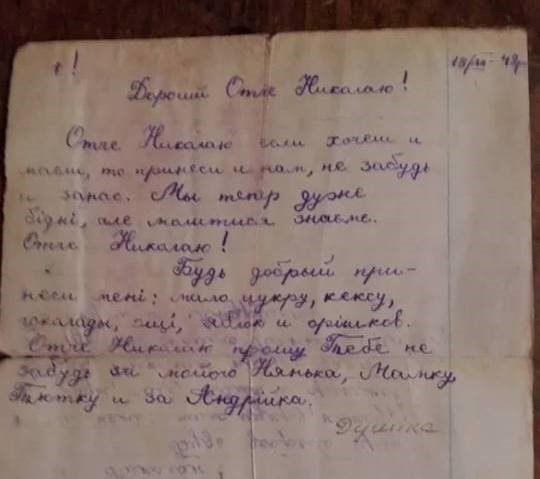 18/XII-49р
Дорогий Отче Николаю!
Отче Николаю если хочеш и
маєш, то принеси и нам, не забудь
и за нас. Мы тепер дуже
бідні, але молитися знаєме.
Отче Николаю!
Будь добрый при-
неси мені: мало цукру, кексу,
чоколады, яблок и орішков.
Отче Николаю прошу Тебе не
забудь за мойого Нянька, Мамку,
Тютку и за Андрійка.